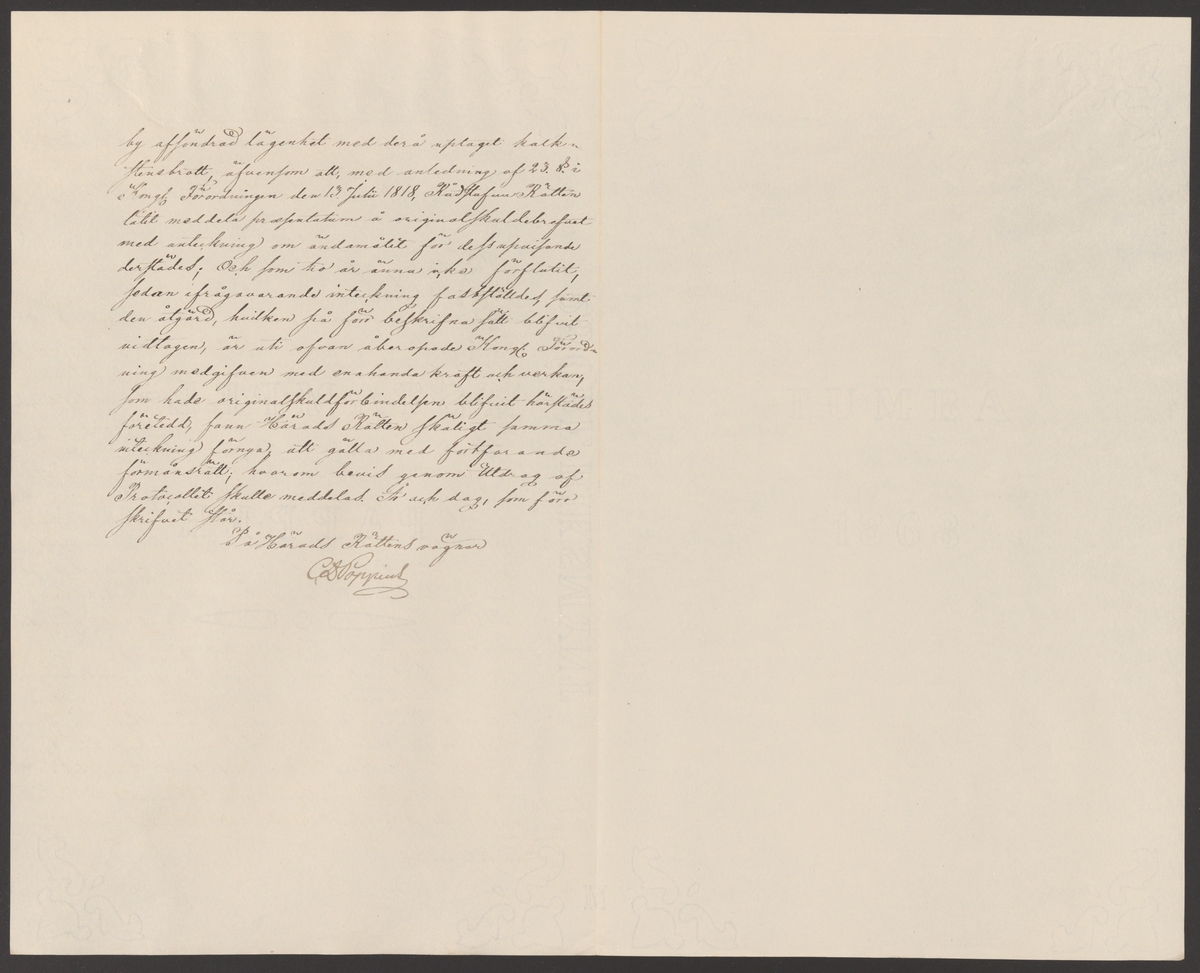 by afsöndrad lägenhet med derå uptaget kalk-
stensbrott, äfvensom att, med anledning af 23. §. i
Kongl. Förordningen den 13 Julii 1818, Rådstufvu Rätten
låtit meddela præsentatum å originalskuldebrefvet
med anteckning om ändamålet för dess upvisande
derstädes; Och som tio år ännu icke förflutit,
sedan ifrågavarande inteckning fastställdes, samt
den åtgärd, hvilken på förr beskrifna sätt blifvit
vidtagen, är uti ofvan åberopade Kongl. Förord-
ning medgifven med enahanda kraft och verkan,
som hade originalskuldförbindelsen blifvit härstädes
företedd, fann Härads Rätten skäligt samma
inteckning förnya, att gälla med fortfarande
förmånsrätt; hvarom bevis genom Utdrag af
Protocollet skulle meddelas. År och dag, som förr
skrifvet står.
På Härads Rättens vägnar
Poppius